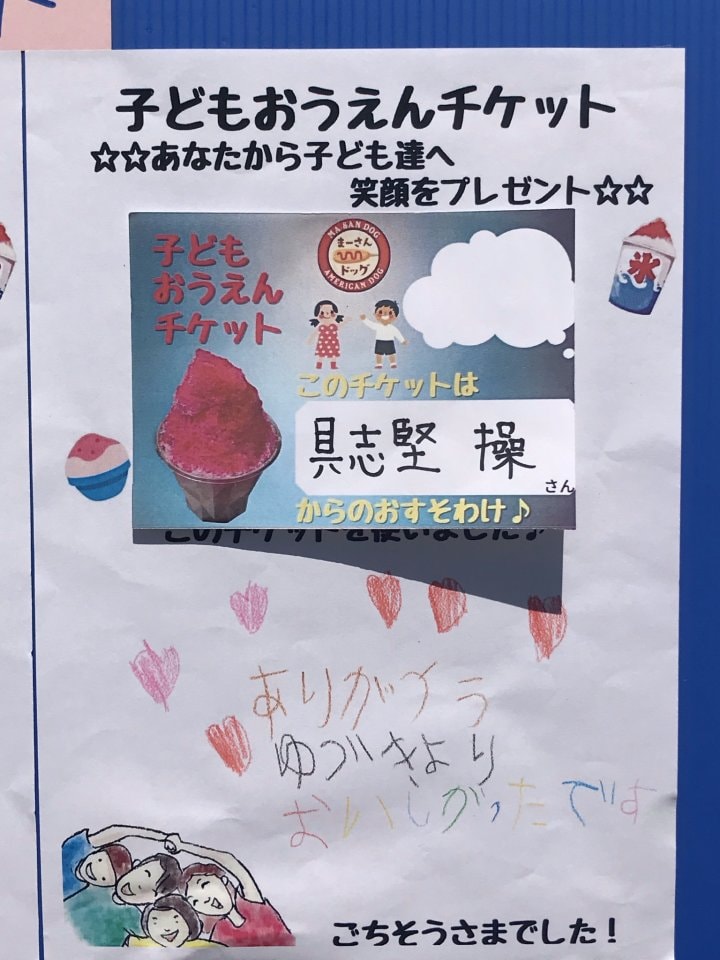 子どもおうえんチケット
☆☆あなたから子ども達へ
笑顔をプレゼント☆☆
氷
MA-SAN DOG
まーさん
ドッグ
AMERICAN DOG
子ども
おうえん
チケット
このチケットは
具志堅 操
さん
からのおすそわけ♪
このチケットを使いました♪
ありがろう
ゆづきより
おいしがったです
ごちそうさまでした!